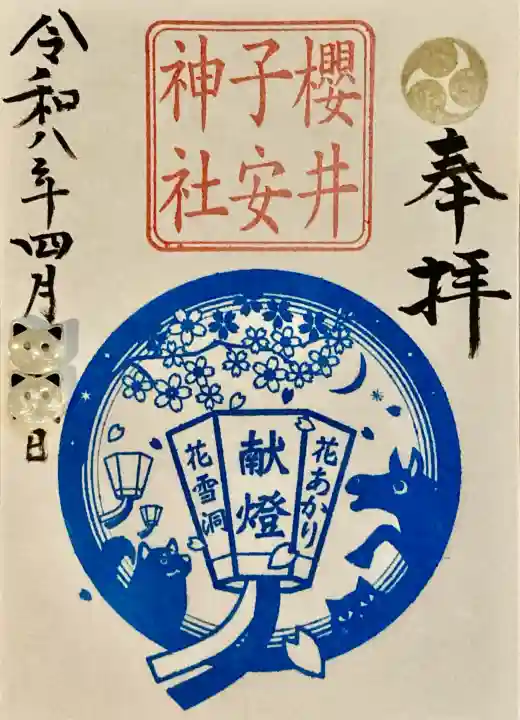 奉拝
櫻井
子安
神社
花あかり
献燈
花雪洞
令和八年四月
日